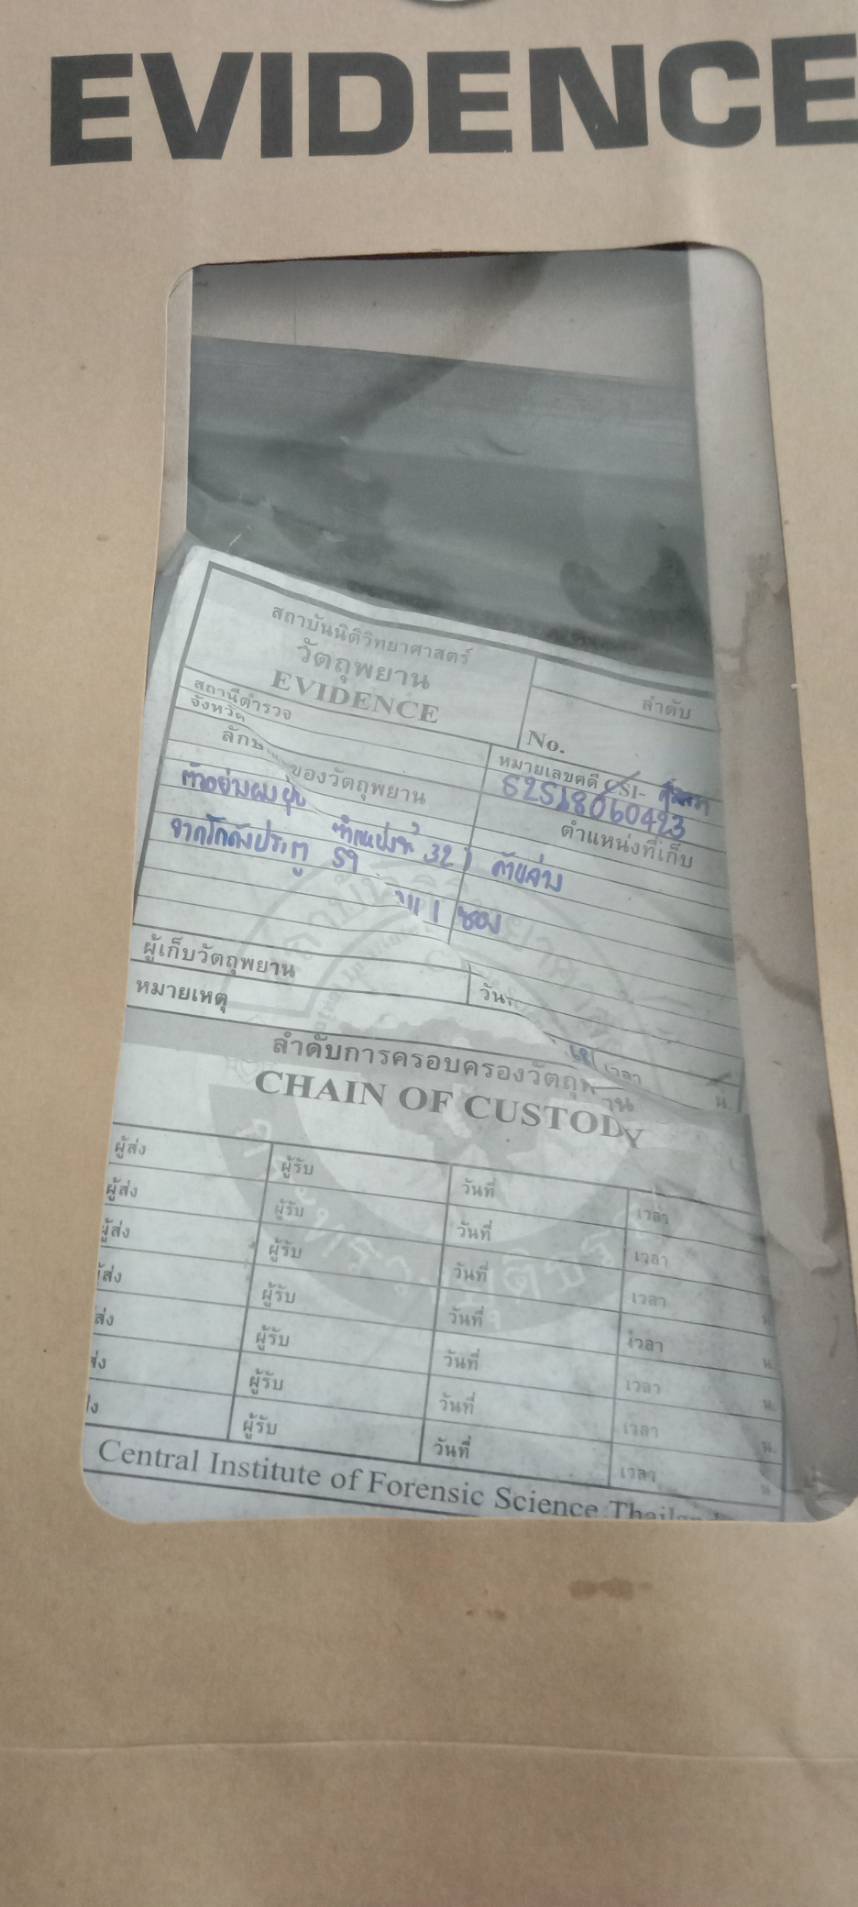 EVIDENCE
สถาบันนิติวิทยาศาสตร์
วัตถุพยาน
EVIDENCE
ลำดับ
No.
สถานีตำรวจ
จังหวัด
หมายเลขคดี CSI-
52518060423
ลักษ ของวัตถุพยาน
ตำแหน่งที่เก็บ
ตัวอย่างผงฝุ่น ตำแหน่งที่ 32 ) ด้านล่าง
ประตู 59
1 ซอง
ผู้เก็บวัตถุพยาน
วัน
เวลา น.
หมายเหตุ
ลำดับการครอบครองวัตถุพยาน
CHAIN OF CUSTODY
ผู้ส่ง ผู้รับ วันที่ เวลา
ผู้ส่ง ผู้รับ วันที่ เวลา
ผู้ส่ง ผู้รับ วันที่ เวลา
ส่ง ผู้รับ วันที่ เวลา น.
ส่ง ผู้รับ วันที่ เวลา น.
ส่ง ผู้รับ วันที่ เวลา น.
ผู้รับ วันที่ เวลา น.
Central Institute of Forensic Science Thailand